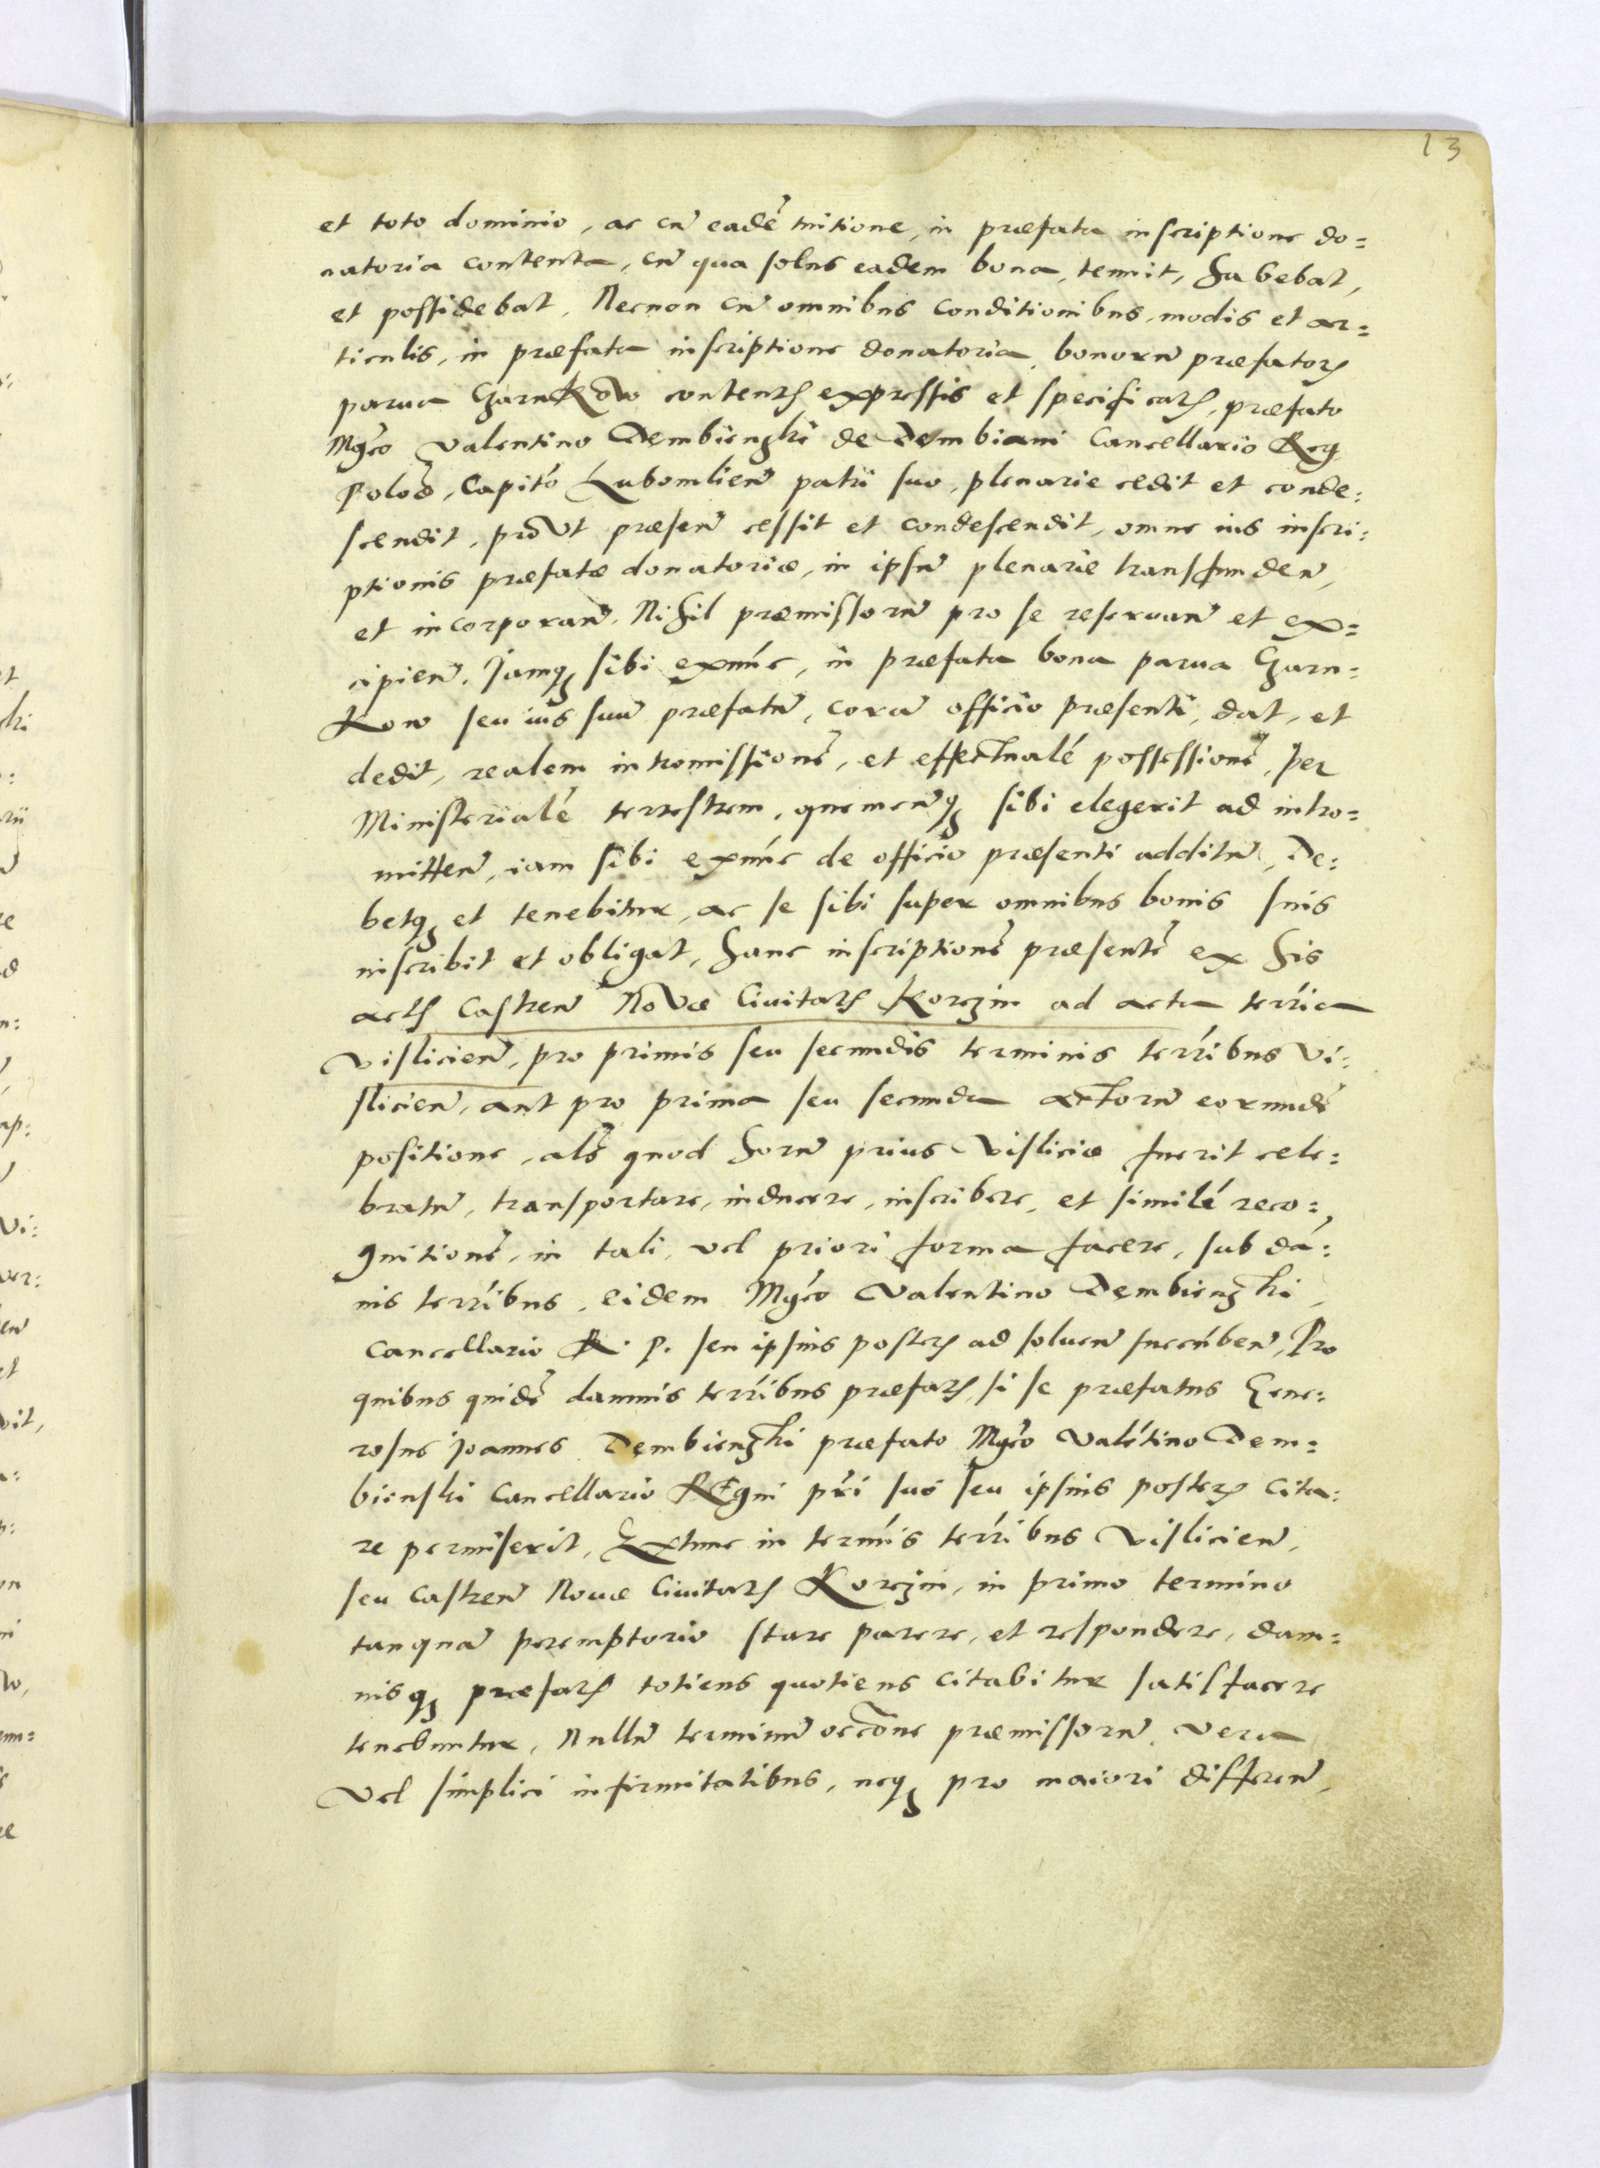 13
et toto dominio, ac cũ eadẽ tuitione, in præfata inscriptione do=
natoria contenta, cũ qua solus eadem bona, tenuit, habebat,
et possidebat, Necnon cũ omnibus conditionibus, modis et ar=
ticulis, in præfata inscriptione donatoria, bonorũ præfatorꝫ
parua Garnkow contentꝫ expressis et specificatꝫ, præfato
Mgco Valentino Dembienski de Dembiani Cancellario Reg
Poloñ, Capitó Lubomlieñ patri suo, plenarie cedit et conde=
scendit, proVt præseñ cessit et condescendit, omne ius inscri=
ptionis præfatæ donatoriæ, in ipsũ plenarie transfundeñ,
et incorporañ, Nihil præmissorũ pro se reseruañ et ex=
cipieñ. Jamqꝫ sibi exnúc, in præfata bona parua Garn=
kow seu ius suũ præfatũ, corã officio præsenti, dat, et
dedit, realem intromissionẽ, et effectualé possessionẽ, per
Ministerialé terrestrem, quemcunqꝫ sibi elegerit ad intro=
mitteñ, iam sibi exnúc de officio præsenti additũ, De=
betqꝫ et tenebitur, ac se sibi super omnibus bonis suis
inscribit et obligat, hanc inscriptionẽ præsentẽ ex his
actꝫ Castreñ NoVæ Ciuitatꝫ Korczin ad acta terria
Vislicieñ, pro primis seu secundis terminis terribus Vi=
slicieñ, aut pro prima seu secunda actorũ eorundẽ
positione, als quod horũ prius Visliciæ fuerit cele=
bratũ, transportare, inducere, inscribere, et similé reco=
gnitionẽ, in tali, vel priori forma facere, sub dá=
nis terribus, eidem Mgco Valentino Dembienski,
Cancellario R. P. seu ipsius posterꝫ ad solueñ succúbeñ, Pro
quibus quidẽ damnis terribus præfatꝫ, si se præfatus Gene=
rosus Joannes Dembienski præfato Mgco Valétino Dem=
bienski Cancellario Regni pri suo seu ipsius posterꝫ cita=
re permiserit, Extunc in termís terribus Vislicieñ,
seu castreñ Nouæ Ciuitatꝫ Korczin, in primo termino
tanquã peremptorio stare parere, et respondere, dam=
nisqꝫ præfatꝫ totiens quotiens citabitur satisfacere
tenebuntur, Nullũ terminũ occõne præmissorũ, vera
Vel simplici infirmitatibus, neqꝫ pro maiori differeñ,